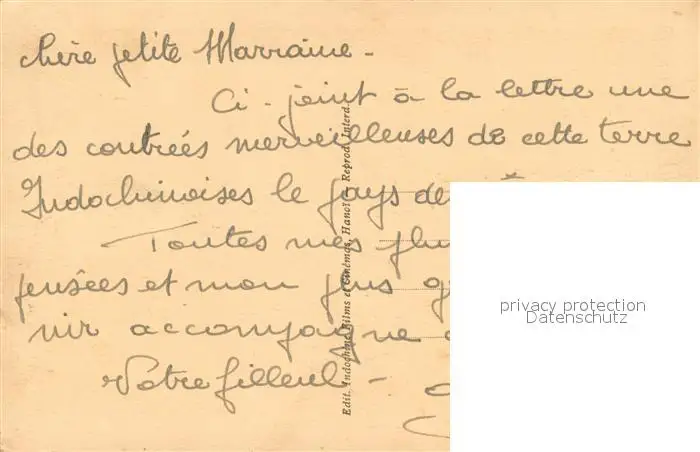 chère petite Marraine -
Ci-joint à la lettre une
des contrées merveilleuses de cette terre
Indochinoises le pays de
Toutes mes
pensées et mon plus
nir accompagne
Votre filleul -
Edit. Indochine Films et Cinémas, Hanoï - Reprod. Interd.
privacy protection
Datenschutz